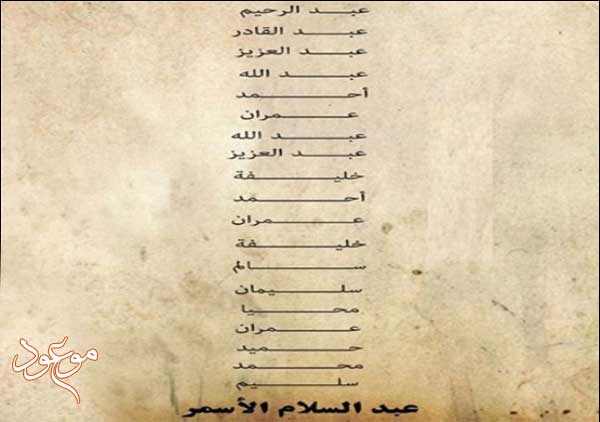 عبد الرحيم
عبد القادر
عبد العزيز
عبد الله
أحمد
عمران
عبد الله
عبد العزيز
خليفة
أحمد
عمران
خليفة
سالم
سليمان
محيا
عمران
حميد
محمد
سليم
عبد السلام الأسمر
موعود